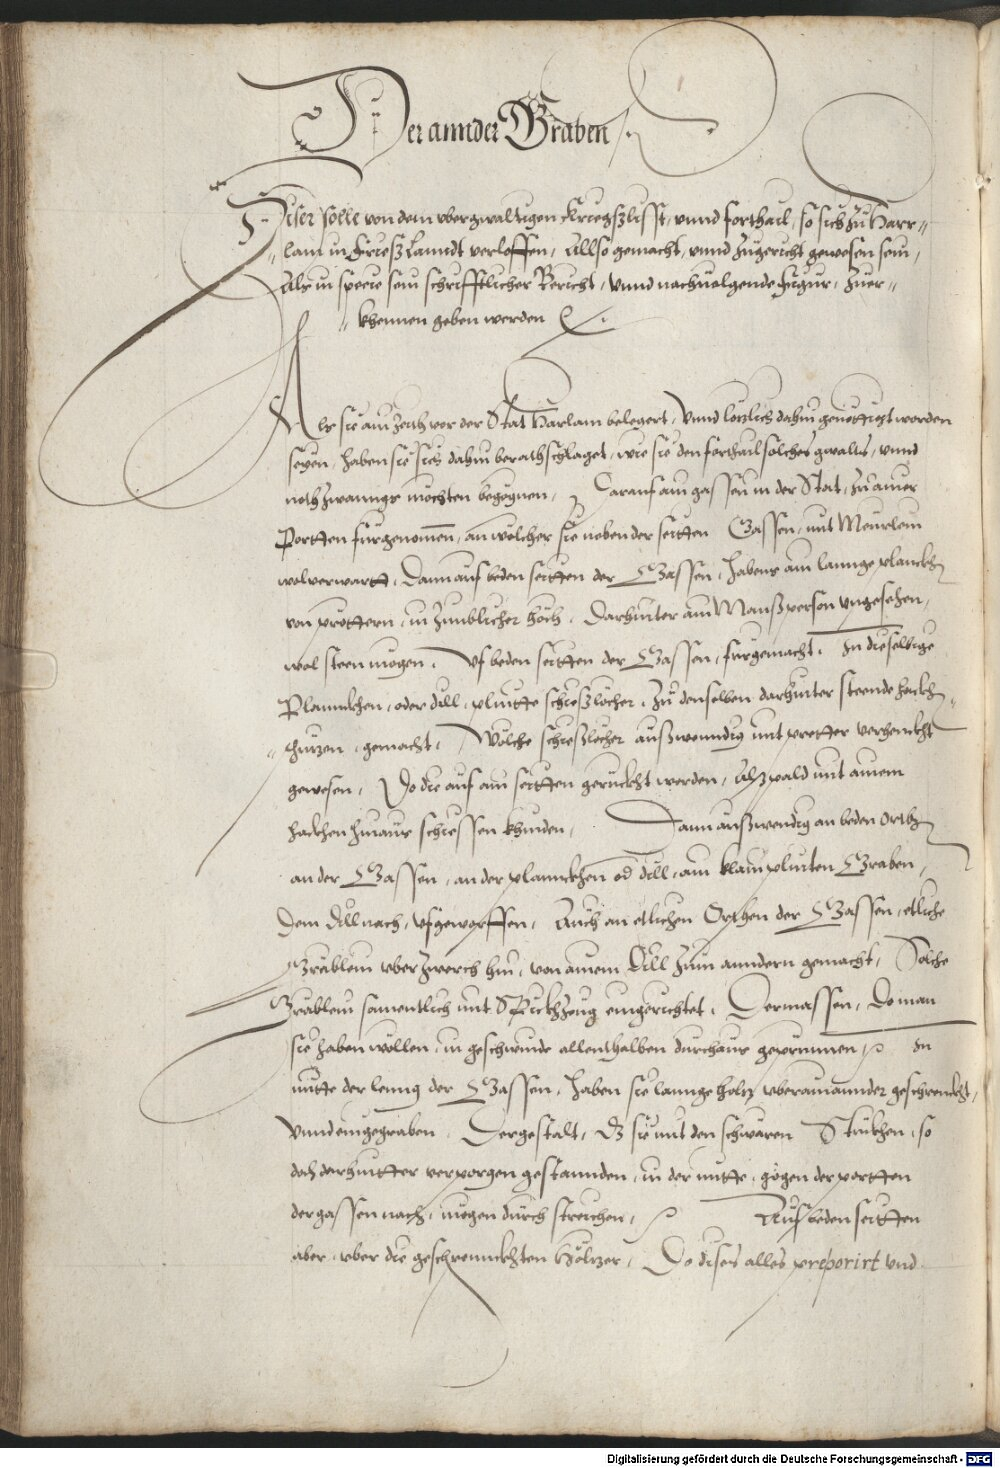 Der annder Graben
Diser solle von dem vbergwaltigen Kriegszlisst, vnnd forthail, so sich zu Harr¬
lam in Frieszlanndt verloffen, Allso gemacht, vnnd zugericht gewesen sein,
Als in specie sein schrifftlicher Bericht, vnnd nachuolgende Figur, zuer¬
khennen geben werden
Als sie ain Zeith vor der Stat Harlam belegert, Vnnd lötzlich dahin genöttigt worden
seyen, haben sie sich dahin berathschlaget, wie sie den forthail solches gwalts, vnnd
nothzwanngs möchten begögnen, Darauf ain gassen in der Stat, zu ainer
Portten fürgenommen, an wölcher sie neben der seitten Gassen, mit Meurlein
wolverwartt, Dann auf beden seitten der Gassen, habens ain lannge planckhen
von prettern, in zimblicher höch, Darhinter ain Mansperson vngesehen,
wol steen mögen, Vf beden seitten der Gassen, fürgemacht, In dieselbige
Plannckhen, oder dill, plinte schieszlöcher, zu denselben darhinter steende hackhen¬
schuzen, gemacht, Wölche schieszlöcher auszwenndig mit pretter verhenckht
gewesen, Do die auf ain seitten geruckht werden, Alszpald mit ainem
hackhen hinaus schiessen khinden, Dann auszwendig an beden orthen
an der Gassen, an der plannckhen od dill, ain klain plinten Graben,
dem dill nach, vfgeworffen, Auch an etlichen Orthen der Gassen, etliche
Gräblein vberzwerch hin, von ainem Dill zum anndern gemacht, Solche
Gräblein samentlich mit Stückhzeug eingerichtet, Dermassen, Do man
sie haben wöllen, in geschwinde allenthalben durchaus geprunnen, In
mitte der leng der Gassen, haben sie lannge holtz vberainannder geschrenckht,
Vnnd eingegraben, Dergestalt, Dz sie mit den schwären Stuckhen, so
doch darhintter verporgen gestannden, in der mitte, gögen der portten
der gassen nach, mögen durch streichen, Auf beden seitten
aber, vber die geschrennckhten Höltzer, Do dises alles preporirt vnd
Digitalisierung gefördert durch die Deutsche Forschungsgemeinschaft - DFG